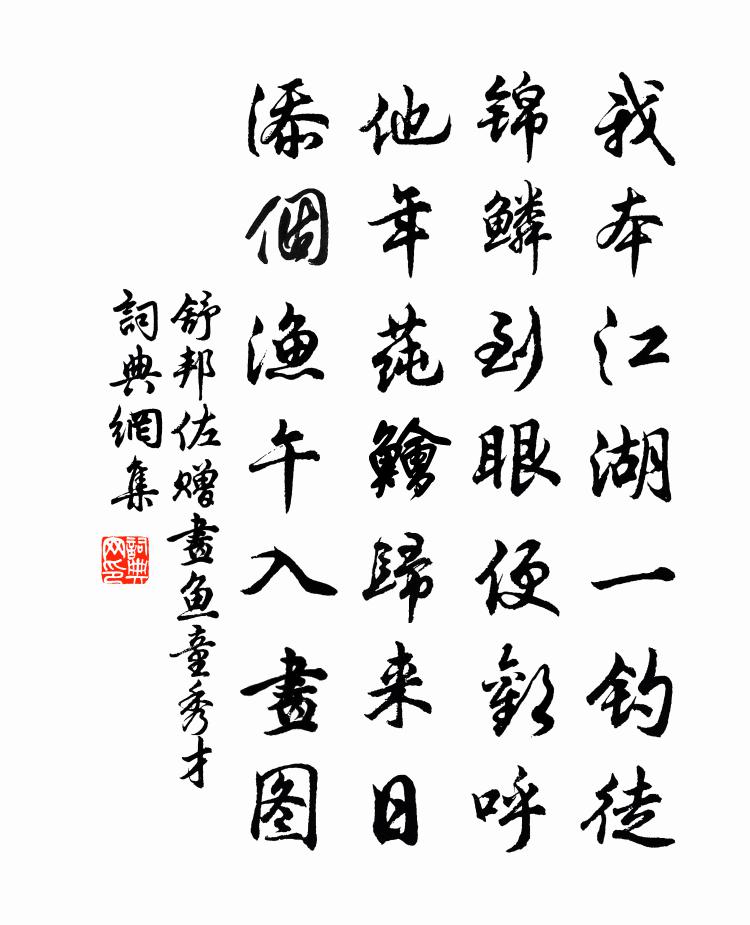 我本江湖一钓徒
锦鳞到眼便歡呼
他年莼鱠歸来日
添個渔午入畫图
舒邦佐赠畫鱼童秀才
詞典網集
詞典網印